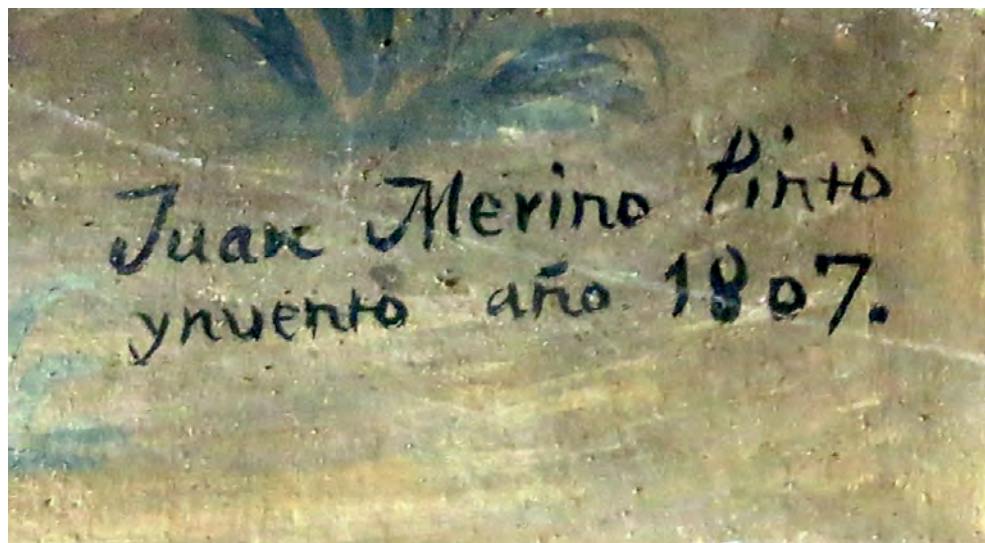 Juan Merino Pintò
ynuentò año 1807.